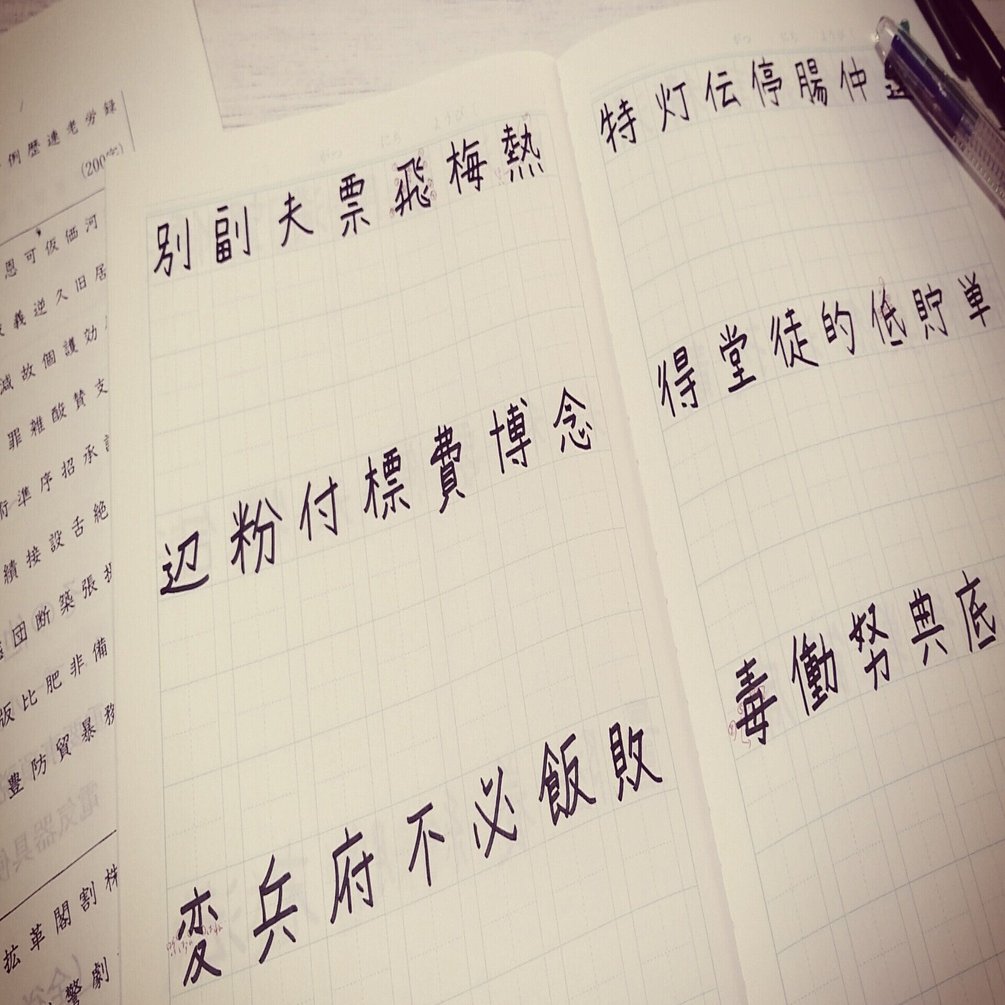 例歴連老労録
(200字)
恩可仮価河
義逆久旧居
減故個護効
罪雑酸賛支
準序招承
績接設舌絶
団断築張
版比肥非備
豊防貿暴務
拡革閣割株
警劇
単
仲貯
腸低底
停的典
伝徒努
灯堂働
特得毒
熱念敗
梅博飯
飛費必
票標不
夫付府
副粉兵
別辺変